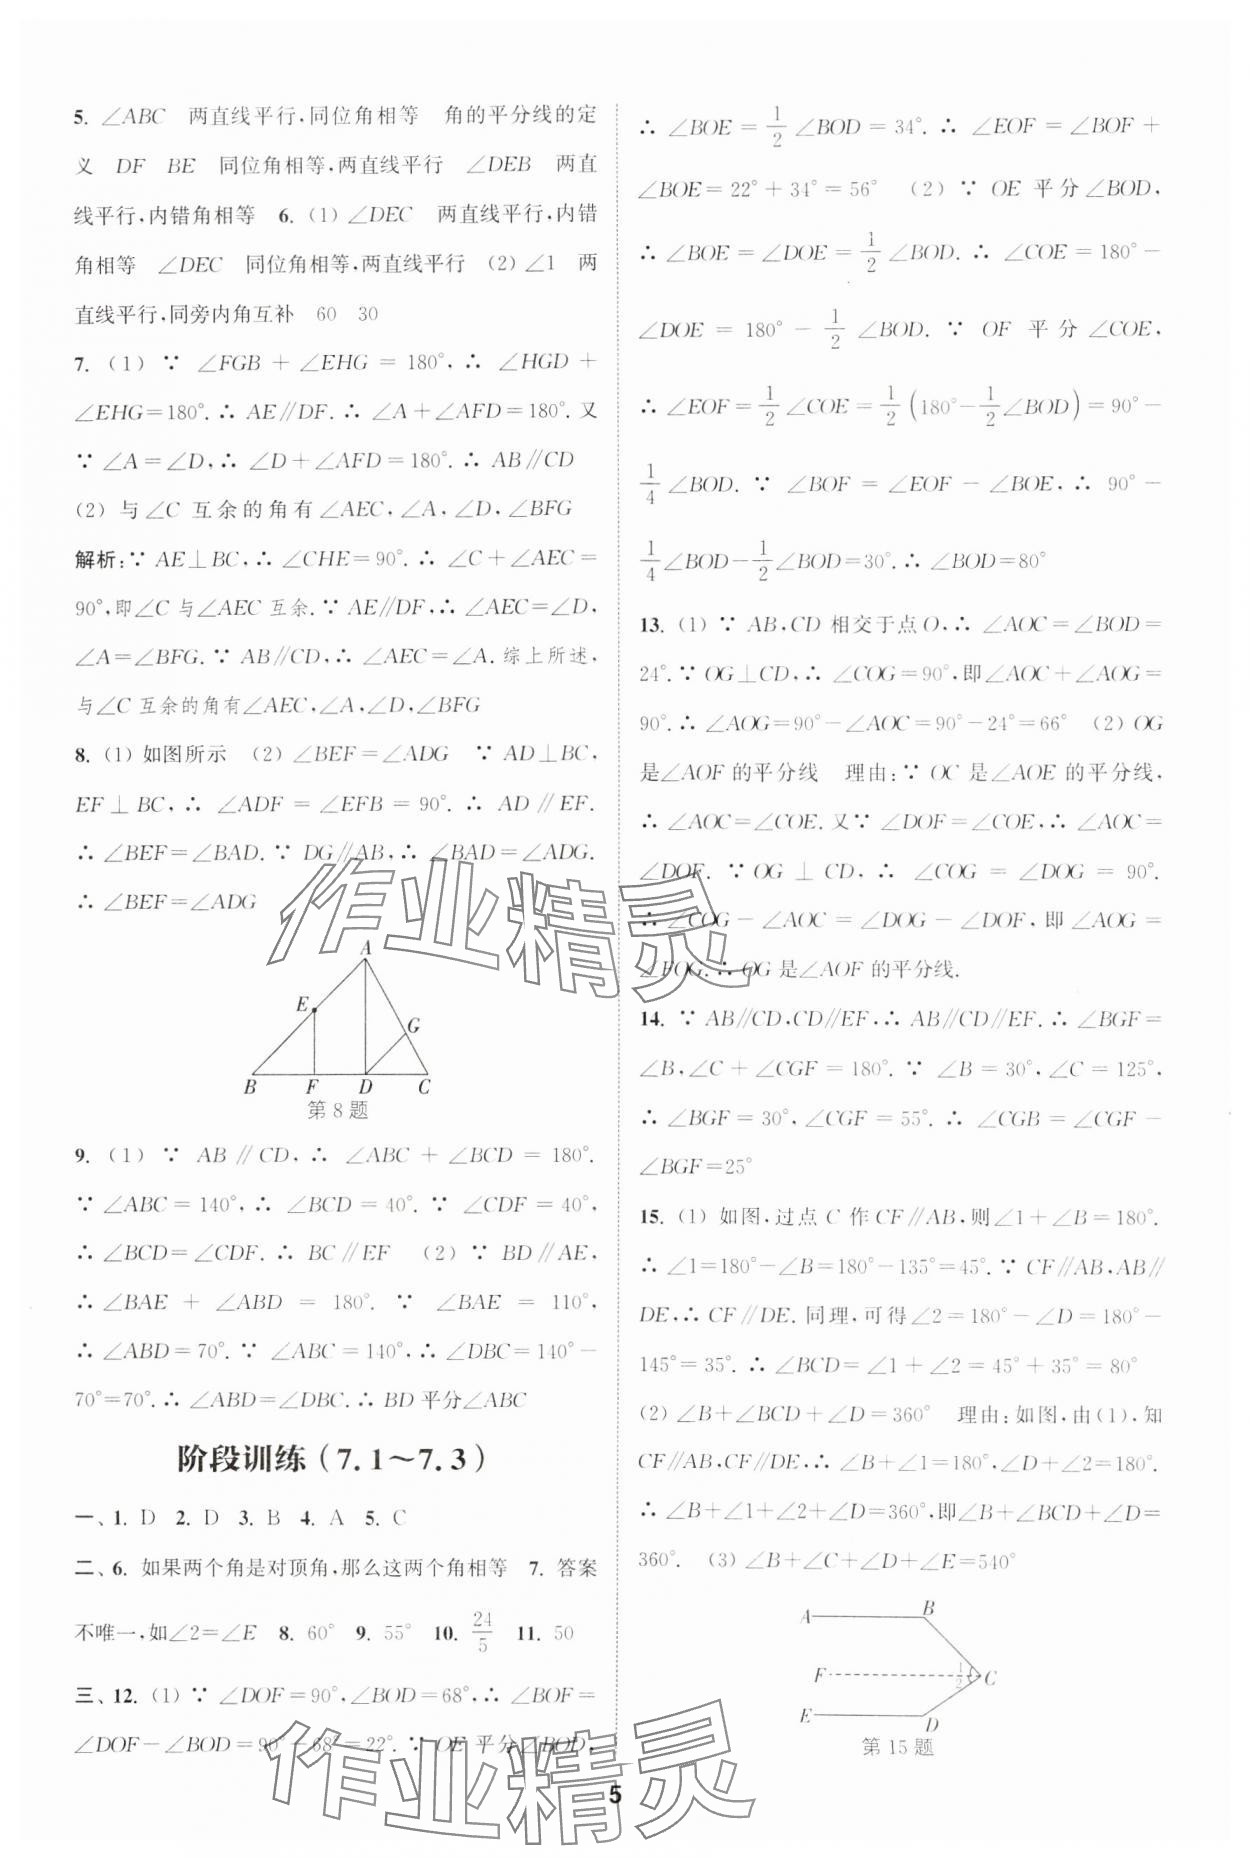 5. ∠ABC　两直线平行,同位角相等　角的平分线的定
义　DF　BE　同位角相等,两直线平行　∠DEB　两直
线平行,内错角相等　6. (1) ∠DEC　两直线平行,内错
角相等　∠DEC　同位角相等,两直线平行　(2) ∠1　两
直线平行,同旁内角互补　60　30
7. (1) ∵ ∠FGB + ∠EHG = 180°, ∴ ∠HGD +
∠EHG=180°. ∴ AE∥DF. ∴ ∠A+∠AFD=180°. 又
∵ ∠A=∠D, ∴ ∠D+∠AFD=180°. ∴ AB∥CD
(2) 与∠C 互余的角有∠AEC, ∠A, ∠D, ∠BFG
解析: ∵ AE⊥BC, ∴ ∠CHE=90°. ∴ ∠C+∠AEC=
90°,即∠C 与∠AEC 互余. ∵ AE∥DF, ∴ ∠AEC=∠D,
∠A=∠BFG. ∵ AB∥CD, ∴ ∠AEC=∠A. 综上所述,
与∠C 互余的角有∠AEC, ∠A, ∠D, ∠BFG
8. (1) 如图所示　(2) ∠BEF=∠ADG　∵ AD⊥BC,
EF⊥BC, ∴ ∠ADF=∠EFB=90°. ∴ AD∥EF.
∴ ∠BEF=∠BAD. ∵ DG∥AB, ∴ ∠BAD=∠ADG.
∴ ∠BEF=∠ADG
A
E
G
B F D C
第 8 题
9. (1) ∵ AB∥CD, ∴ ∠ABC+∠BCD=180°.
∵ ∠ABC=140°, ∴ ∠BCD=40°. ∵ ∠CDF=40°,
∴ ∠BCD=∠CDF. ∴ BC∥EF　(2) ∵ BD∥AE,
∴ ∠BAE + ∠ABD = 180°. ∵ ∠BAE = 110°,
∴ ∠ABD=70°. ∵ ∠ABC=140°, ∴ ∠DBC=140°−
70°=70°. ∴ ∠ABD=∠DBC. ∴ BD 平分∠ABC
阶段训练(7.1～7.3)
一、1. D　2. D　3. B　4. A　5. C
二、6. 如果两个角是对顶角,那么这两个角相等　7. 答案
不唯一,如∠2=∠E　8. 60°　9. 55°　10. 24/5　11. 50
三、12. (1) ∵ ∠DOF=90°, ∠BOD=68°, ∴ ∠BOF=
∠DOF−∠BOD=90°−68°=22°. ∵ OE 平分∠BOD,
∴ ∠BOE=1/2∠BOD=34°. ∴ ∠EOF=∠BOF+
∠BOE=22°+34°=56°　(2) ∵ OE 平分∠BOD,
∴ ∠BOE=∠DOE=1/2∠BOD. ∴ ∠COE=180°−
∠DOE=180°−1/2∠BOD. ∵ OF 平分∠COE,
∴ ∠EOF=1/2∠COE=1/2(180°−1/2∠BOD)=90°−
1/4∠BOD. ∵ ∠BOF=∠EOF−∠BOE, ∴ 90°−
1/4∠BOD−1/2∠BOD=30°. ∴ ∠BOD=80°
13. (1) ∵ AB, CD 相交于点 O, ∴ ∠AOC=∠BOD=
24°. ∵ OG⊥CD, ∴ ∠COG=90°,即∠AOC+∠AOG=
90°. ∴ ∠AOG=90°−∠AOC=90°−24°=66°　(2) OG
是∠AOF 的平分线　理由: ∵ OC 是∠AOE 的平分线,
∴ ∠AOC=∠COE. 又∵ ∠DOF=∠COE, ∴ ∠AOC=
∠DOF. ∵ OG⊥CD, ∴ ∠COG=∠DOG=90°.
∴ ∠COG−∠AOC=∠DOG−∠DOF,即∠AOG=
∠FOG. ∴ OG 是∠AOF 的平分线.
14. ∵ AB∥CD, CD∥EF, ∴ AB∥CD∥EF. ∴ ∠BGF=
∠B, ∠C+∠CGF=180°. ∵ ∠B=30°, ∠C=125°,
∴ ∠BGF=30°, ∠CGF=55°. ∴ ∠CGB=∠CGF−
∠BGF=25°
15. (1) 如图,过点 C 作 CF∥AB,则∠1+∠B=180°.
∴ ∠1=180°−∠B=180°−135°=45°. ∵ CF∥AB, AB∥
DE, ∴ CF∥DE. 同理,可得∠2=180°−∠D=180°−
145°=35°. ∴ ∠BCD=∠1+∠2=45°+35°=80°
(2) ∠B+∠BCD+∠D=360°　理由:如图,由(1),知
CF∥AB, CF∥DE, ∴ ∠B+∠1=180°, ∠D+∠2=180°.
∴ ∠B+∠1+∠2+∠D=360°,即∠B+∠BCD+∠D=
360°.　(3) ∠B+∠C+∠D+∠E=540°
A B
F 1 2 C
E D
第 15 题
作业精灵
作业精灵
5